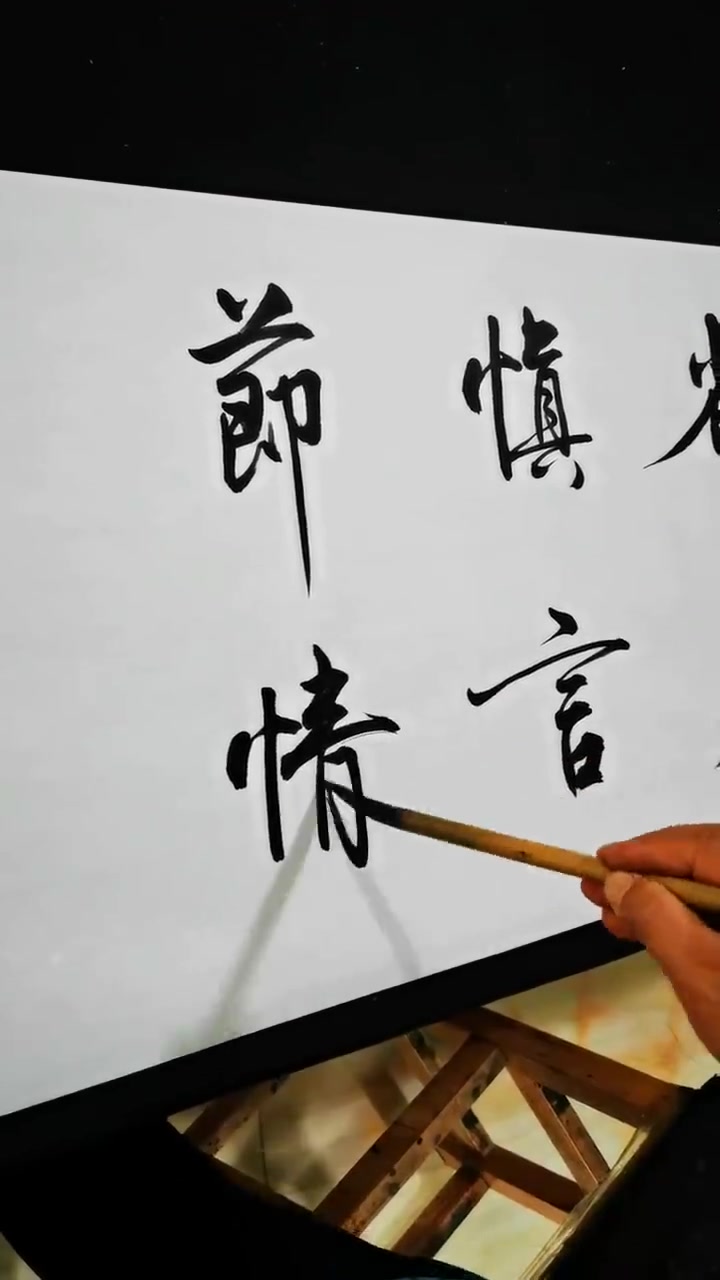 慎言
節情